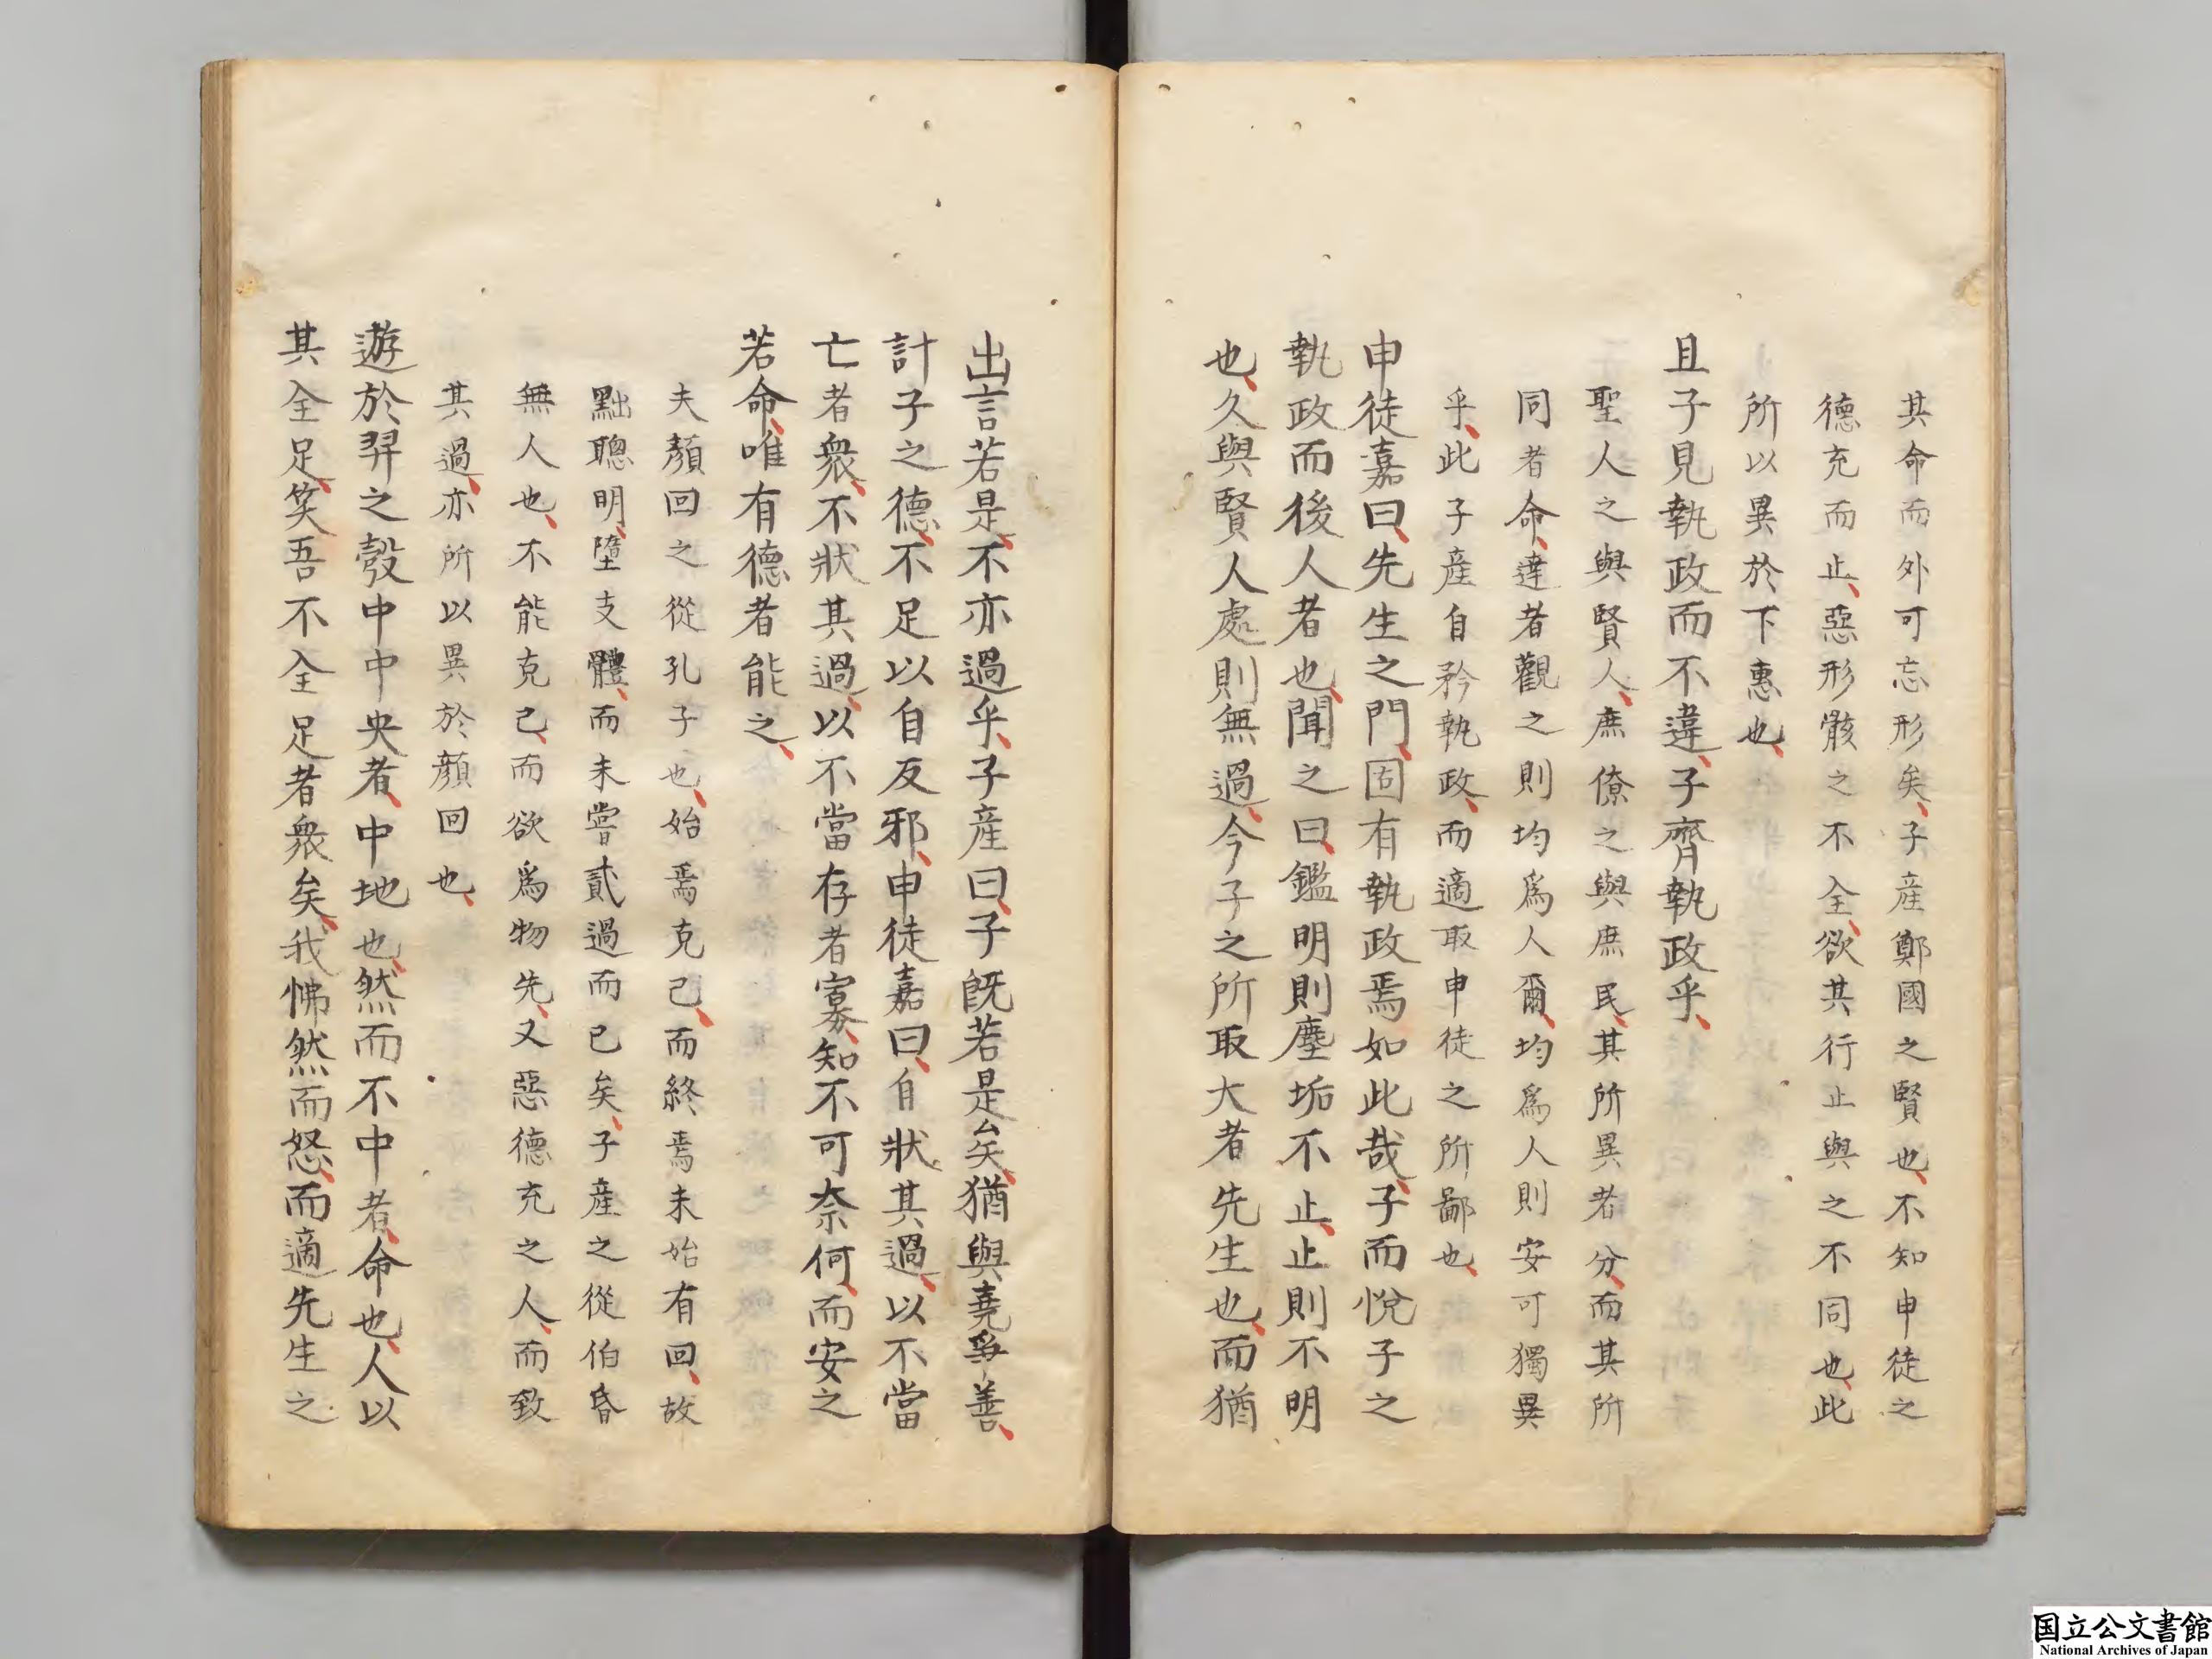 其命而外可忘形矣、子産鄭國之賢也、不知申徒之
德充而止、惡形骸之不全、欲其行止與之不同也、此
所以異於下惠也、
且子見執政而不違、子齊執政乎、
聖人之與賢人、庶僚之與庶民、其所異者分、而其所
同者命、達者觀之則均爲人爾、均爲人則安可獨異
乎、此子産自矜執政、而適取申徒之所鄙也、
申徒嘉曰、先生之門、固有執政焉如此哉、子而悅子之
執政而後人者也、聞之曰、鑑明則塵垢不止、止則不明
也、久與賢人處則無過、今子之所取大者先生也、而猶
出言若是、不亦過乎、子産曰、子既若是矣、猶與堯爭善、
計子之德、不足以自反邪、申徒嘉曰、自狀其過、以不當
亡者衆、不狀其過、以不當存者寡、知不可奈何、而安之
若命、唯有德者能之、
夫顏回之從孔子也、始焉克己、而終焉未始有回、故
黜聰明、墮支體、而未嘗貳過而已矣、子産之從伯昏
無人也、不能克己、而欲爲物先、又惡德充之人、而致
其過、亦所以異於顏回也、
遊於羿之彀中中央者、中地也、然而不中者、命也、人以
其全足、笑吾不全足者衆矣、我怫然而怒、而適先生之
国立公文書館
National Archives of Japan